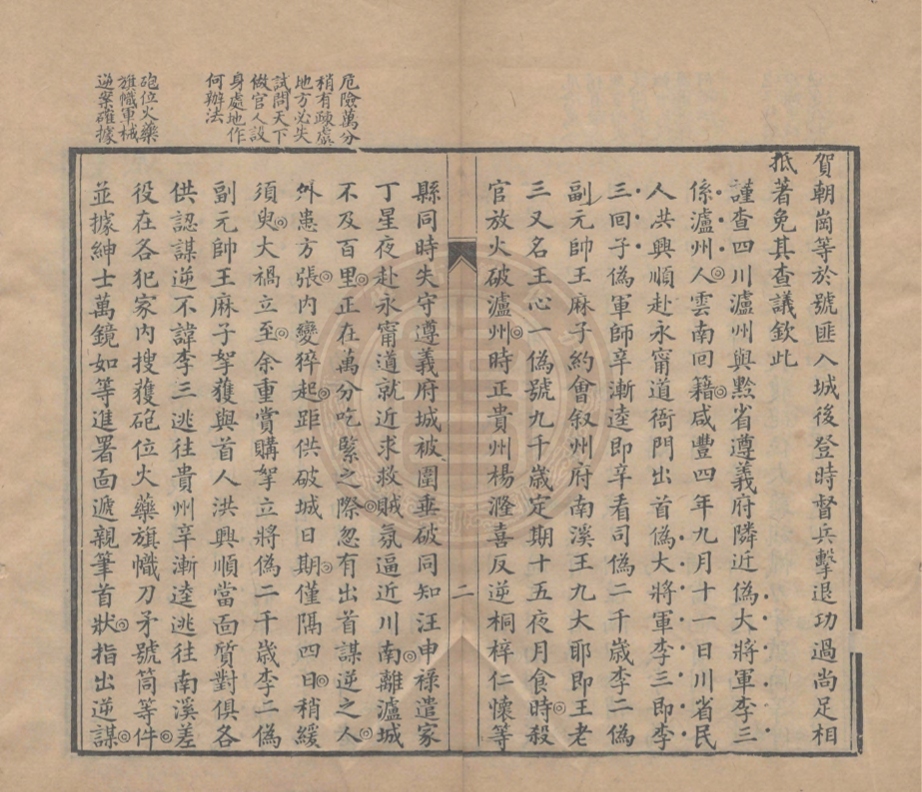 賀朝崗等於號匪入城後登時督兵擊退功過尚足相
抵著免其查議欽此
謹查四川瀘州與黔省遵義府隣近偽大將軍李三
係瀘州人雲南回籍咸豐四年九月十一日川省民
人洪興順赴永甯道衙門出首偽大將軍李三即李
三回子偽軍師辛漸逵即辛看司偽二千歲李二偽
副元帥王麻子約會叙州府南溪王九大耶即王老
三又名王心一偽號九千歲定期十五夜月食時殺
官放火破瀘州時正貴州楊漋喜反逆桐梓仁懷等
縣同時失守遵義府城被圍垂破同知汪申祿遣家
丁星夜赴永甯道就近求救賊氛逼近川南離瀘城
不及百里正在萬分吃緊之際忽有出首謀逆之人
外患方張內變猝起距供破城日期僅隔四日稍緩
須臾大禍立至余重賞購拏立將偽二千歲李二偽
副元帥王麻子拏獲與首人洪興順當面質對俱各
供認謀逆不諱李三逃往貴州辛漸逵逃往南溪差
役在各犯家內搜獲砲位火藥旗幟刀矛號筒等件
並據紳士萬鏡如等進署面遞親筆首狀指出逆謀
二
危險萬分
稍有疎虞
地方必失
試問天下
做官人設
身處地作
何辦法
砲位火藥
旗幟軍械
逆案確據